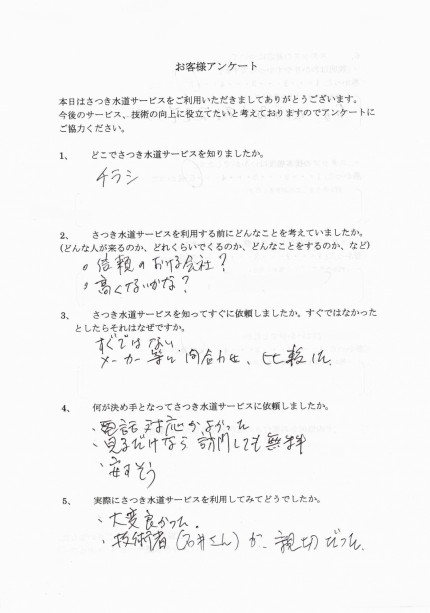 お客様アンケート
本日はさつき水道サービスをご利用いただきましてありがとうございます。
今後のサービス、技術の向上に役立てたいと考えておりますのでアンケートに
ご協力ください。
1、 どこでさつき水道サービスを知りましたか。
チラシ
2、 さつき水道サービスを利用する前にどんなことを考えていましたか。
(どんな人が来るのか、どれくらいでくるのか、どんなことをするのか、など)
○信頼のおける会社?
○高くないかな?
3、 さつき水道サービスを知ってすぐに依頼しましたか。すぐではなかった
としたらそれはなぜですか。
すぐではない
メーカー等に問合わせ、比較した.
4、 何が決め手となってさつき水道サービスに依頼しましたか。
・電話対応がよかった
・見るだけなら訪問しても無料
・安すそう
5、 実際にさつき水道サービスを利用してみてどうでしたか。
・大変良かった。
・技術者(石井さん)が、親切だった.